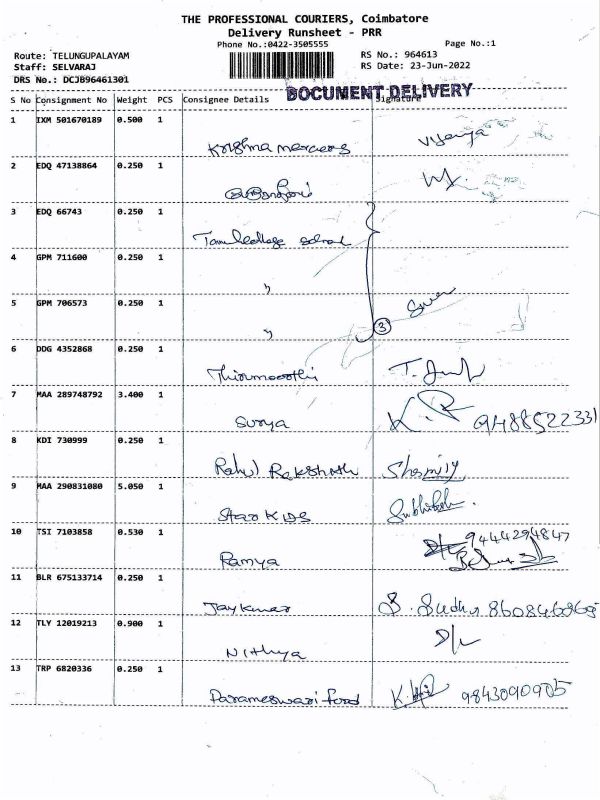 THE PROFESSIONAL COURIERS, Coimbatore
Delivery Runsheet - PRR
Phone No.:0422-3505555
Page No.:1
Route: TELUNGUPALAYAM
RS No.: 964613
Staff: SELVARAJ
RS Date: 23-Jun-2022
DRS No.: DCJB96461301
DOCUMENT DELIVERY
S No Consignment No Weight PCS Consignee Details Signature
1 IXM 501670189 0.500 1
Krishna
2 EDQ 47138864 0.250 1
3 EDQ 66743 0.250 1
4 GPM 711600 0.250 1
"
5 GPM 706573 0.250 1
" 3
6 DDG 4352868 0.250 1
Thirumoorthi
7 MAA 289748792 3.400 1
Surya K.R 9488522331
8 KDI 730999 0.250 1
Rahul Rakshath
9 MAA 290831080 5.050 1
Star KIDS
10 TSI 7103858 0.530 1
Ramya 9444294847
11 BLR 675133714 0.250 1
Jaykumar
12 TLY 12019213 0.900 1
Nithya
13 TRP 6820336 0.250 1
Parameswari food 9843090905